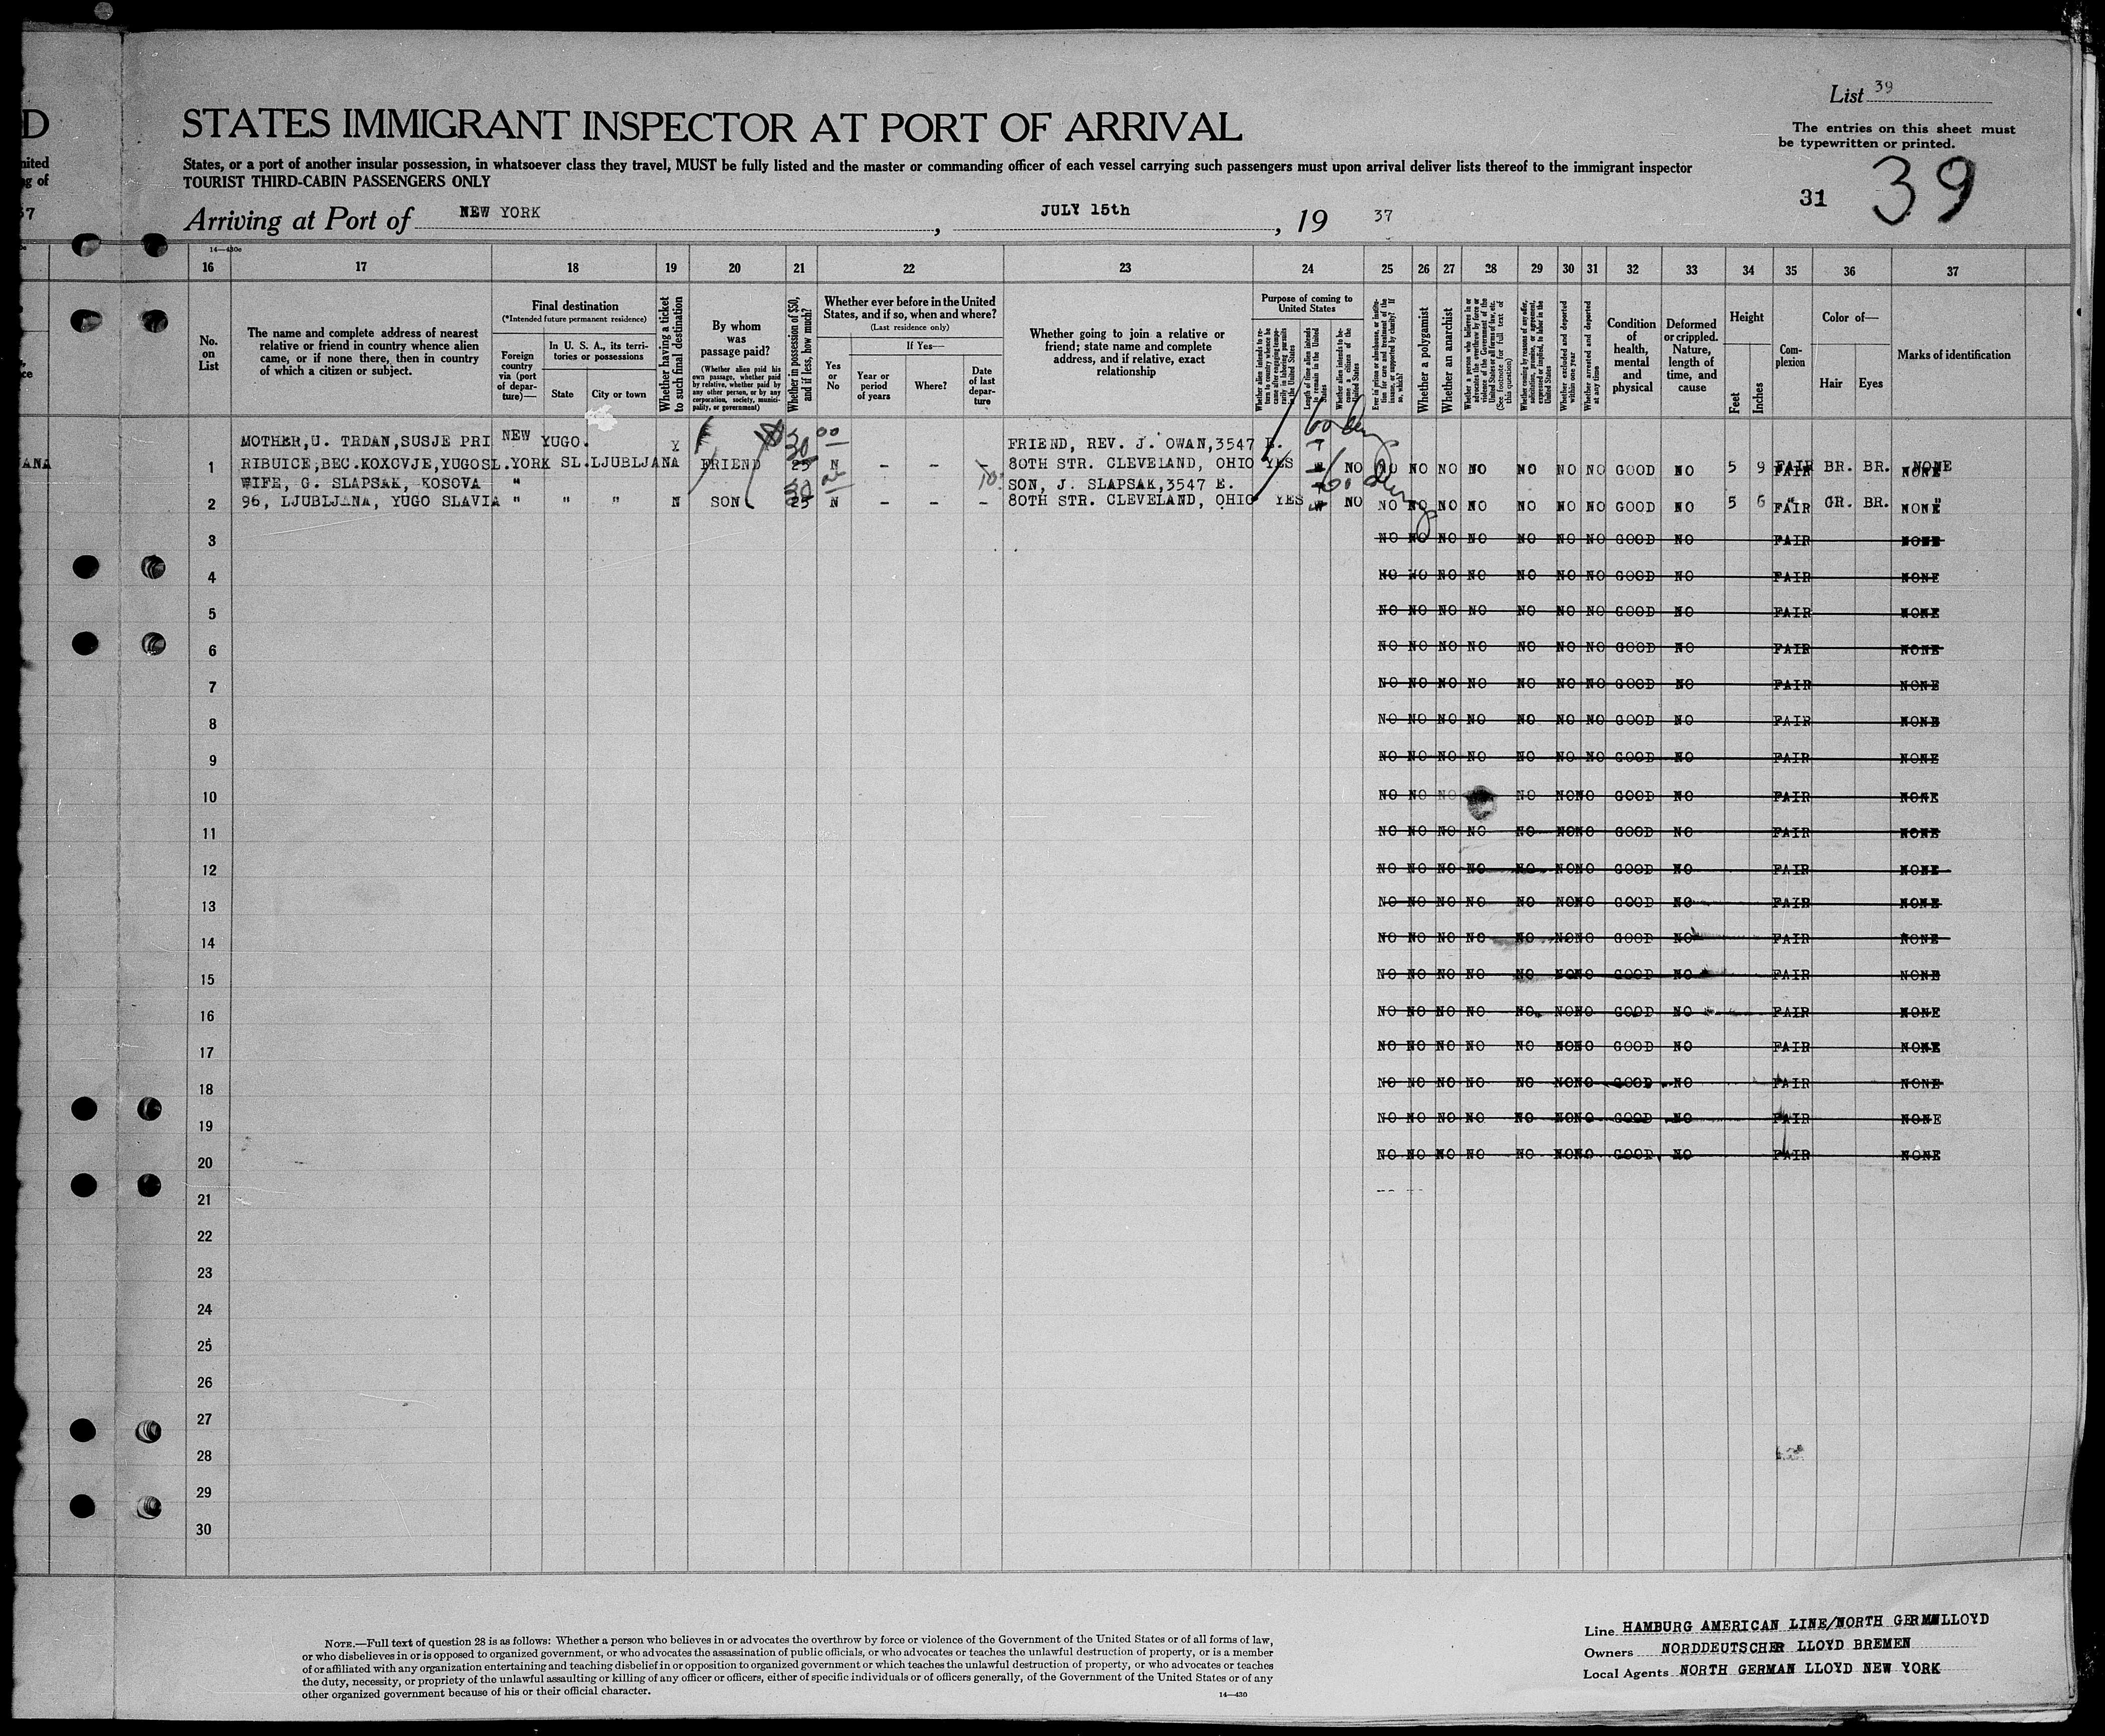 List 39
D
STATES IMMIGRANT INSPECTOR AT PORT OF ARRIVAL
The entries on this sheet must
be typewritten or printed.
nited
States, or a port of another insular possession, in whatsoever class they travel, MUST be fully listed and the master or commanding officer of each vessel carrying such passengers must upon arrival deliver lists thereof to the immigrant inspector
g of
TOURIST THIRD-CABIN PASSENGERS ONLY
31 39
37
Arriving at Port of NEW YORK, JULY 15th, 19 37
14—430c
16 17 18 19 20 21 22 23 24 25 26 27 28 29 30 31 32 33 34 35 36 37
No. on List
The name and complete address of nearest
relative or friend in country whence alien
came, or if none there, then in country
of which a citizen or subject.
Final destination
(*Intended future permanent residence)
Foreign country via (port of departure)—
In U. S. A., its territories or possessions
State
City or town
Whether having a ticket to such final destination
By whom was passage paid?
(Whether alien paid his own passage, whether paid by relative, whether paid by any other person, or by any corporation, society, municipality, or government)
Whether in possession of $50, and if less, how much?
Whether ever before in the United
States, and if so, when and where?
(Last residence only)
If Yes—
Yes or No
Year or period of years
Where?
Date of last departure
Whether going to join a relative or
friend; state name and complete
address, and if relative, exact
relationship
Purpose of coming to United States
Whether alien intends to return to country whence he came after engaging temporarily in laboring pursuits in the United States
Length of time alien intends to remain in the United States
Whether alien intends to become a citizen of the United States
Ever in prison or almshouse, or institution for care and treatment of the insane, or supported by charity? If so, which?
Whether a polygamist
Whether an anarchist
Whether a person who believes in or advocates the overthrow by force or violence of the Government of the United States or all forms of law, etc. (See footnote for full text of this question)
Whether coming by reasons of any offer, solicitation, promise, or agreement, expressed or implied, to labor in the United States
Whether excluded and deported within one year
Whether arrested and deported at any time
Condition of health, mental and physical
Deformed or crippled. Nature, length of time, and cause
Height
Feet
Inches
Complexion
Color of—
Hair
Eyes
Marks of identification
MOTHER,U. TRDAN,SUSJE PRI NEW YUGO. Y 30 00 FRIEND, REV. J. OWAN,3547 E. 60 days
ANA
1 RIBUICE,BEC.KOXCVJE,YUGOSL.YORK SL.LJUBLJANA FRIEND 25 N – – – 80TH STR. CLEVELAND, OHIO YES NO NO NO NO NO NO NO NO GOOD NO 5 9 FAIR BR. BR. NONE
WIFE, G. SLAPSAK, KOSOVA " 30 SON, J. SLAPSAK,3547 E. 60 days
2 96, LJUBLJANA, YUGO SLAVIA " " " N SON 25 N – – – 80TH STR. CLEVELAND, OHIO YES NO NO NO NO NO NO NO NO GOOD NO 5 6 FAIR GR. BR. NONE
3 NO NO NO NO NO NO NO GOOD NO FAIR NONE
4 NO NO NO NO NO NO NO GOOD NO FAIR NONE
5 NO NO NO NO NO NO NO GOOD NO FAIR NONE
6 NO NO NO NO NO NO NO GOOD NO FAIR NONE
7 NO NO NO NO NO NO NO GOOD NO FAIR NONE
8 NO NO NO NO NO NO NO GOOD NO FAIR NONE
9 NO NO NO NO NO NO NO GOOD NO FAIR NONE
10 NO NO NO NO NONO GOOD NO FAIR NONE
11 NO NO NO NO NO NONO GOOD NO FAIR NONE
12 NO NO NO NO NO NONO GOOD NO FAIR NONE
13 NO NO NO NO NO NONO GOOD NO FAIR NONE
14 NO NO NO NO NO NONO GOOD NO FAIR NONE
15 NO NO NO NO NO NONO GOOD NO FAIR NONE
16 NO NO NO NO NO NONO GOOD NO FAIR NONE
17 NO NO NO NO NO NONO GOOD NO FAIR NONE
18 NO NO NO NO NO NONO GOOD NO FAIR NONE
19 NO NO NO NO NO NONO GOOD NO FAIR NONE
20 NO NO NO NO NO NONO GOOD NO FAIR NONE
21
22
23
24
25
26
27
28
29
30
NOTE.—Full text of question 28 is as follows: Whether a person who believes in or advocates the overthrow by force or violence of the Government of the United States or of all forms of law,
or who disbelieves in or is opposed to organized government, or who advocates the assassination of public officials, or who advocates or teaches the unlawful destruction of property, or is a member
of or affiliated with any organization entertaining and teaching disbelief in or opposition to organized government or which teaches the unlawful destruction of property, or who advocates or teaches
the duty, necessity, or propriety of the unlawful assaulting or killing of any officer or officers, either of specific individuals or of officers generally, of the Government of the United States or of any
other organized government because of his or their official character.
14—430
Line HAMBURG AMERICAN LINE/NORTH GERMNLLOYD
Owners NORDDEUTSCHER LLOYD BREMEN
Local Agents NORTH GERMAN LLOYD NEW YORK